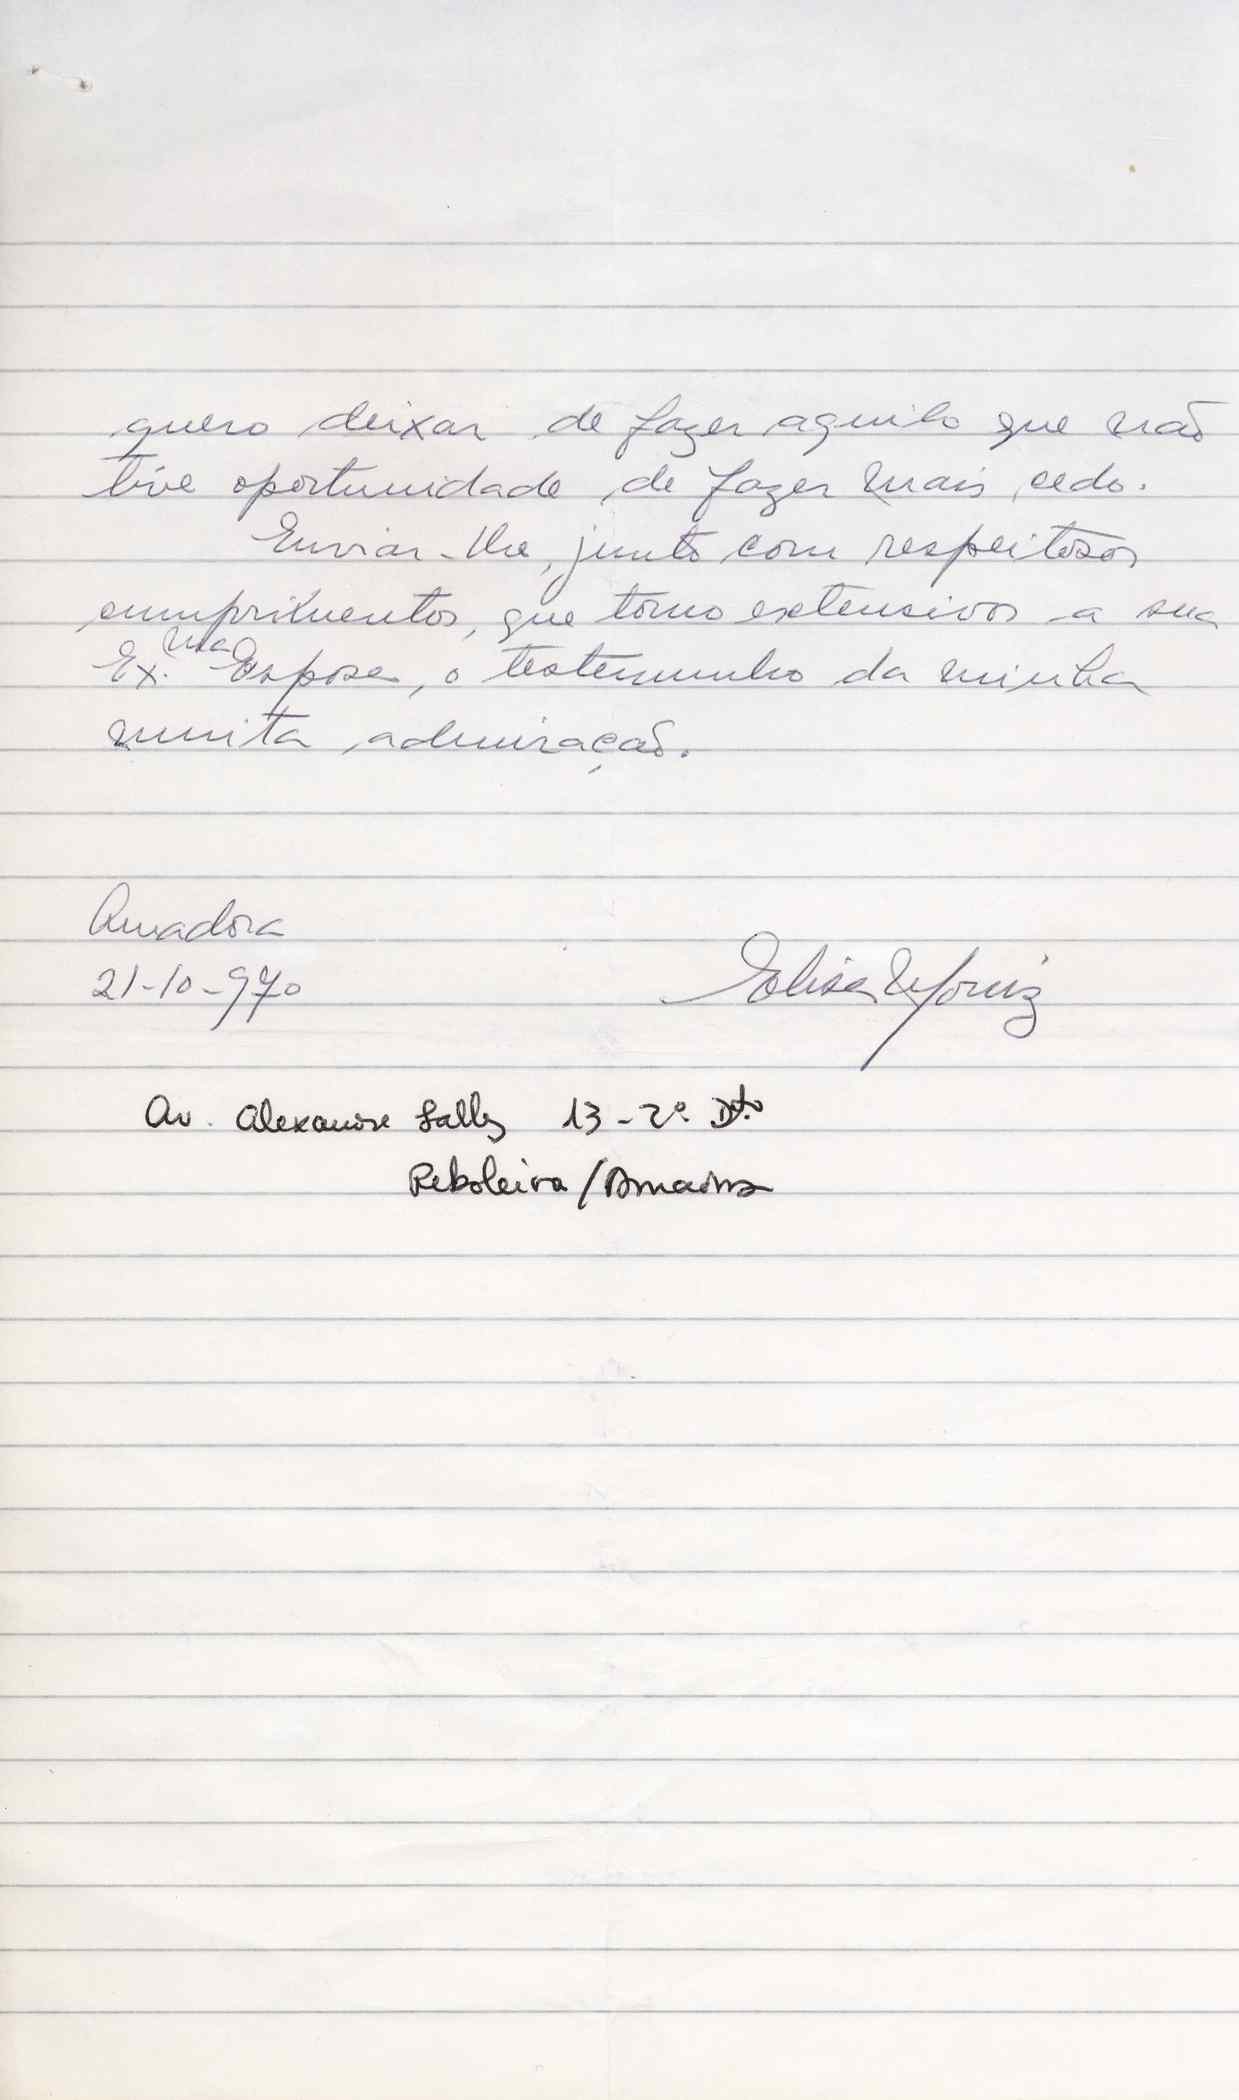 quero deixar de fazer aquilo que não
tive oportunidade de fazer mais cedo.
Enviar-lhe, junto com respeitosos
cumprimentos, que torno extensivos a sua
Ex.ma Esposa, o testemunho da minha
muita admiração.
Amadora
21-10-970
Elisa Moniz
Av. Alexandre Salles 13-2º. Dto.
Reboleira/Amadora